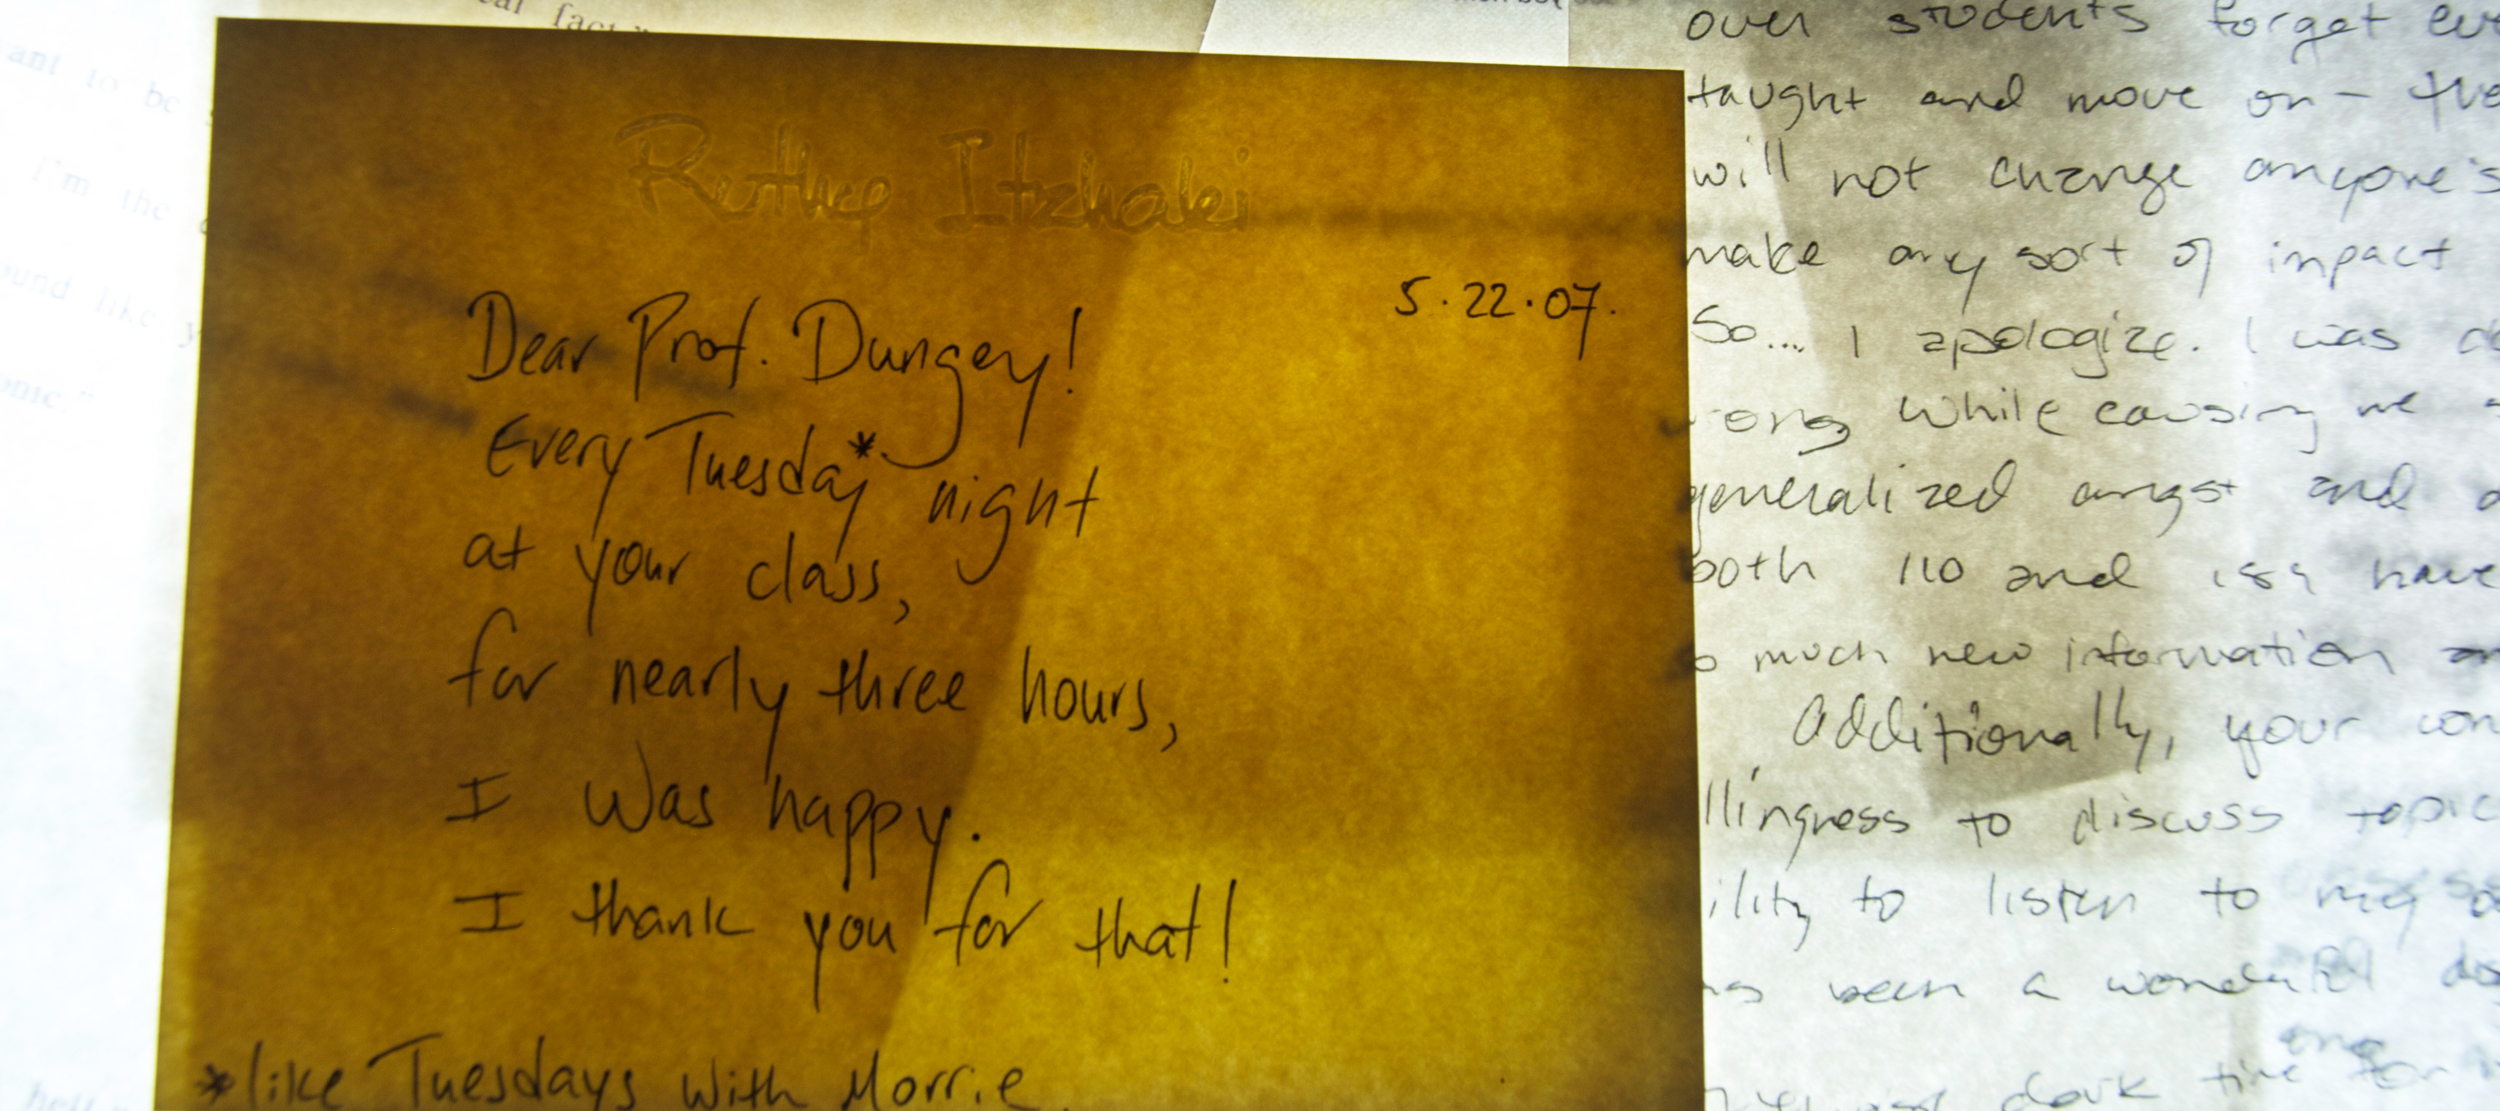 fact"
ant to be
I'm the
ound like y
Ruthie Itzhaki
5.22.07.
Dear Prof. Dungey!
Every Tuesday* night
at your class,
for nearly three hours,
I was happy.
I thank you for that!
*like Tuesdays with Morrie.
over students forget eve
taught and move on - the
will not change anyone's
make any sort of impact
So... I apologize. I was
rong while causing me
generalized angst and
both 110 and 159 have
so much new information
Additionally, your con
llingness to discuss topic
ility to listen to my so
as been a wonderful
dark time for